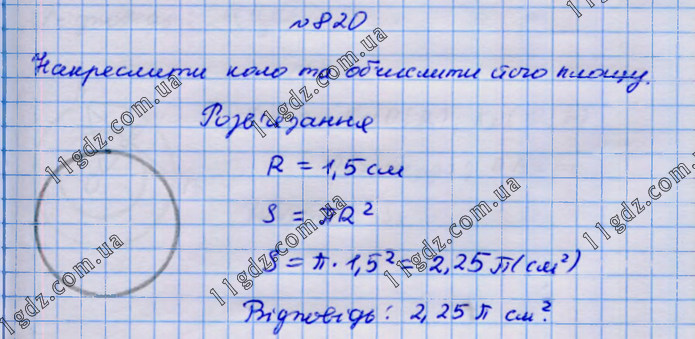 №820
Накреслити коло та обчислити його площу.
Розв'язання
R = 1,5 см
S = πR²
S = π · 1,5² = 2,25 π (см²)
Відповідь: 2,25 π см².
11gdz.com.ua
11gdz.com.ua
11gdz.com.ua
11gdz.com.ua
11gdz.com.ua
11gdz.com.ua
11gdz.com.ua
11gdz.com.ua